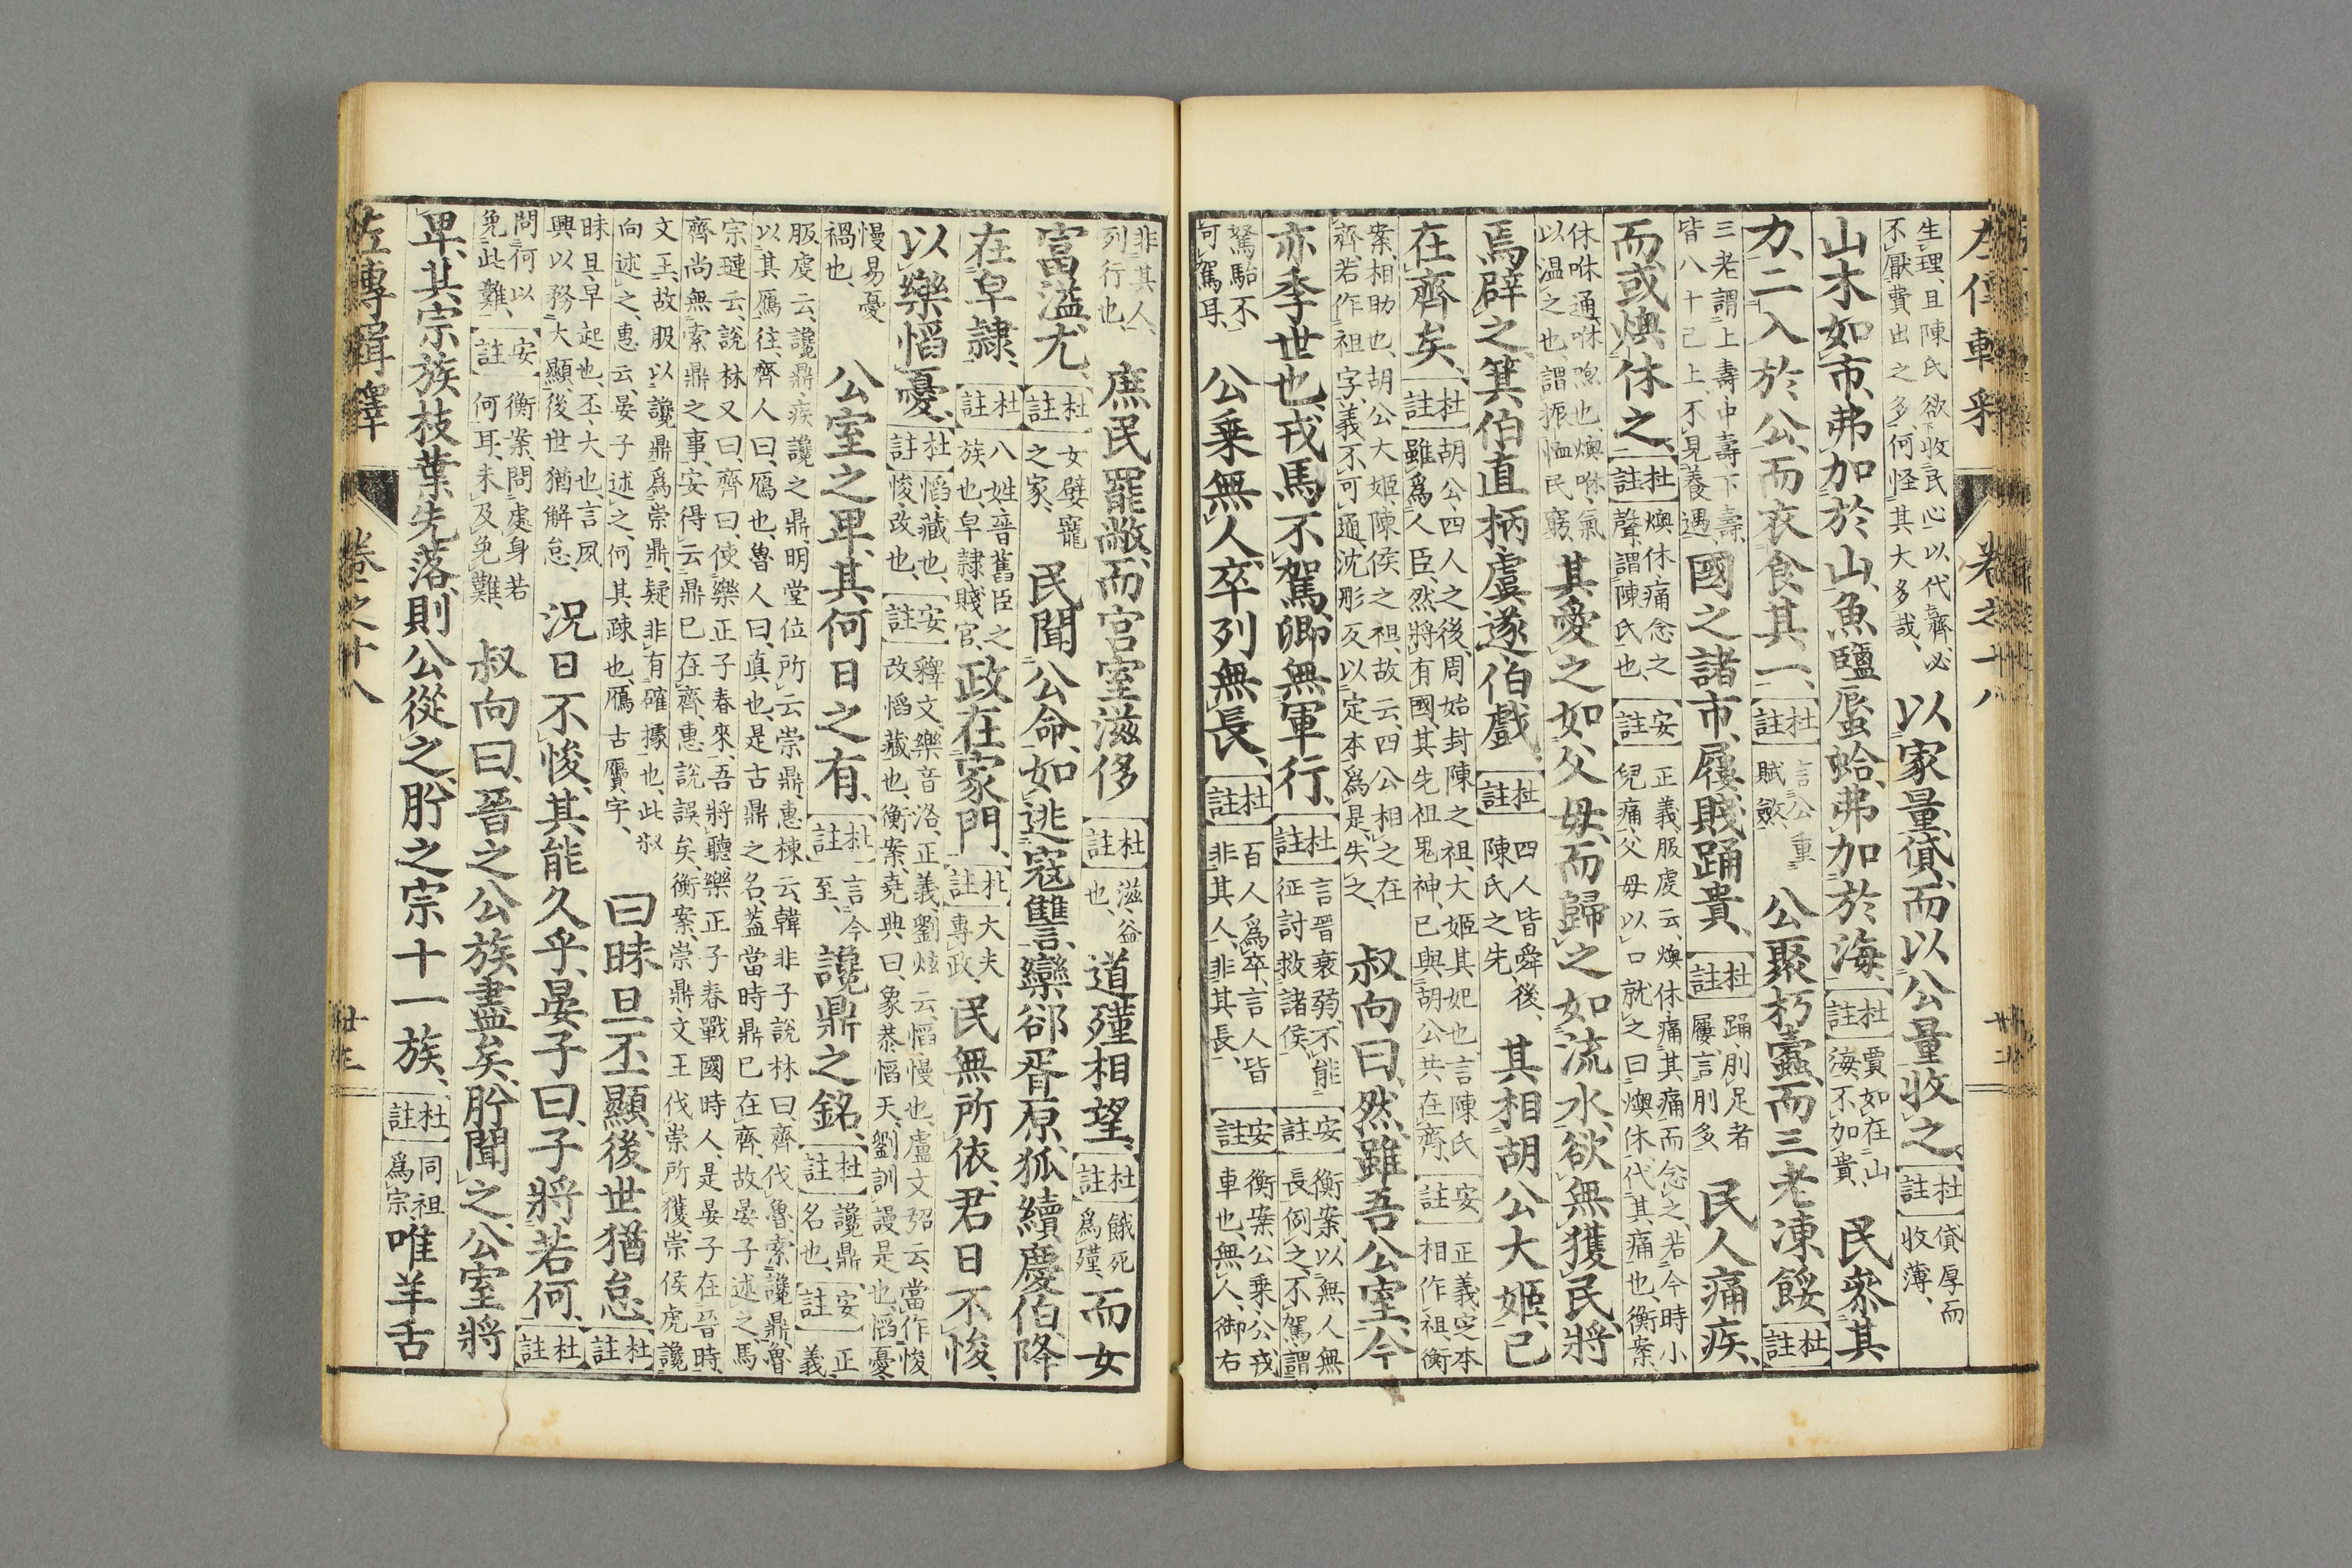 左傳輯釋 卷之十八 廿二
生理、且陳氏欲收民心、以代齊、必
不厭費出之多、何怪其大多哉、
以家量貸、而以公量收之、
杜註 貸厚而
收薄、
山木如市、弗加於山、魚鹽蜃蛤、弗加於海、
杜註 賈如在山
海、不加貴、
民參其
力、二入於公、而衣食其一、
杜註 言公重
賦斂、
公聚朽蠹、而三老凍餒、
杜註
三老、謂上壽中壽下壽、
皆八十已上、不見養遇、
國之諸市、屨賤踊貴、
杜註 踊、刖足者
屨、言刖多、
民人痛疾、
而或燠休之、
杜註 燠休、痛念之
聲、謂陳氏也、
安註 正義、服虔云、燠休、痛其痛而念之、若今時小
兒痛、父母以口就之曰燠休、代其痛也、衡案、
休咻通、咻、喣也、燠咻、氣
以温之也、謂振恤民窮、
其愛之如父母、而歸之如流水、欲無獲民、將
焉辟之、箕伯直柄虞遂伯戲、
杜註 四人皆舜後、
陳氏之先、
其相胡公大姬、已
在齊矣、
杜註 胡公、四人之後、周始封陳之祖、大姬其妃也、言陳氏
雖爲人臣、然將有國、其先祖鬼神、已與胡公共在齊、
安註 正義、定本
相作祖、衡
案、相助也、胡公大姬、陳侯之祖、故云、四公相之在
齊、若作祖字、義不可通、沈彤反以定本爲是、失之、
叔向曰、然、雖吾公室、今
亦季世也、戎馬不駕、卿無軍行、
杜註 言晉衰弱、不能
征討救諸侯、
安註 衡案、以無人無
長例之、不駕、謂
駑駘不
可駕耳、
公乘無人、卒列無長、
杜註 百人爲卒、言人皆
非其人、非其長、
安註 衡案、公乘、公戎
車也、無人、御右
非其人、
列行也、
庶民罷敝、而宮室滋侈、
杜註 滋、益
也、
道殣相望、
杜註 餓死
爲殣、
而女
富溢尤、
杜註 女、嬖寵
之家、
民聞公命、如逃寇讎、欒郤胥原狐續慶伯、降
在皁隸、
杜註 八姓、晉舊臣之
族也、皁隸、賤官、
政在家門、
杜註 大夫
專政、
民無所依、君日不悛、
以樂慆憂、
杜註 慆、藏也、
悛、改也、
安註 釋文、樂音洛、正義、劉炫云、慆、慢也、盧文弨云、當作悛
改慆藏也、衡案、堯典曰、象恭慆天、劉訓謾是也、慆憂、
慢易憂
禍也、
公室之卑、其何日之有、
杜註 言今
至、
讒鼎之銘、
杜註 讒鼎
名也、
安註 正
義、
服虔云、讒鼎、疾讒之鼎、明堂位所云崇鼎、惠棟云、韓非子說林曰、齊伐魯、索讒鼎、魯
以其鴈往、齊人曰、鴈也、魯人曰、真也、是古鼎之名、蓋當時鼎已在齊、故晏子述之、馬
宗璉云、說林又曰、齊曰、使樂正子春來、吾將聽樂正子春、戰國時人、是晏子在晉時、
齊尚無索鼎之事、安得云鼎已在齊、惠說誤矣、衡案、崇鼎、文王伐崇所獲、崇侯虎讒
文王、故服以讒鼎爲崇鼎、疑非有確據也、此叔
向述之、惠云、晏子述之、何其疎也、鴈古贋字、
曰、昧旦丕顯、後世猶怠、
杜註
昧旦、早起也、丕、大也、言夙
興以務大顯、後世猶解怠、
況日不悛、其能久乎、晏子曰、子將若何、
杜註
問何以
免此難、
安註 衡案、問處身若
何耳、未及免難、
叔向曰、晉之公族盡矣、肸聞之、公室將
卑、其宗族枝葉先落、則公從之、肸之宗十一族、
杜註 同祖
爲宗、
唯羊舌
左傳輯釋 卷之十八 廿三